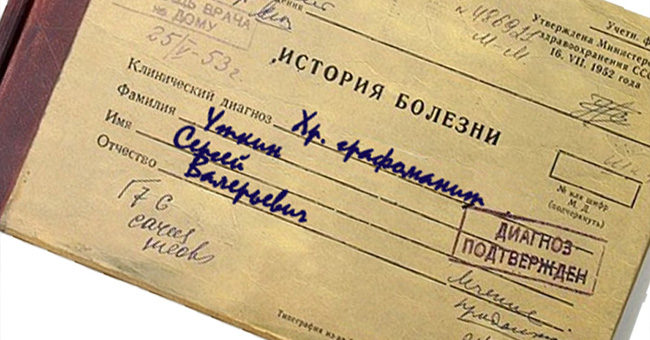 ВРАЧА
НА ДОМУ
25/V-53г
486925
М-М
Учетн. ф
Утверждена Министер
здравоохранения ССС
16. VII. 1952 года
ИСТОРИЯ БОЛЕЗНИ
Клинический диагноз Хр. графомания
Фамилия Уткин
Имя Сергей
Отчество Валерьевич
№ или шифр
М. Д.
(подчеркнуть)
ДИАГНОЗ
ПОДТВЕРЖДЕН
Типография